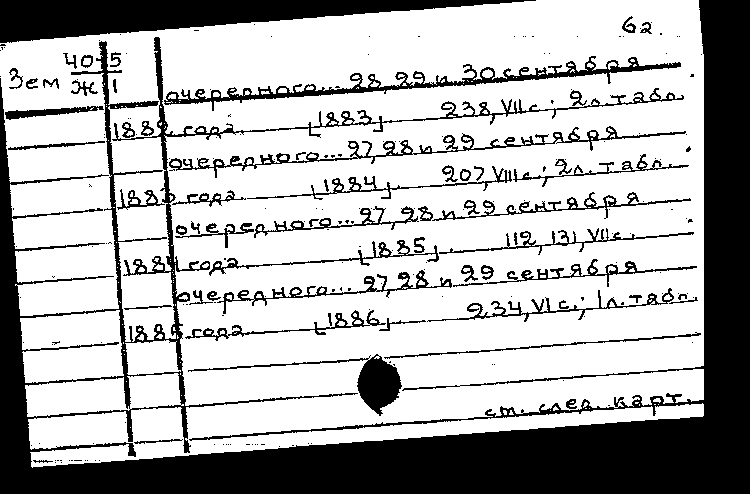 6а.
Зем 40-5
Ж 1
очередного... 28, 29 и 30 сентября
1882 года. [1883]. 238, VII с.; 2л. табл.
очередного... 27, 28 и 29 сентября
1883 года. [1884]. 207, VIII с.; 2л. табл.
очередного... 27, 28 и 29 сентября
1884 года. [1885]. 112, 131, VII с.
очередного... 27, 28 и 29 сентября
1885 года. [1886]. 234, VI с.; 1л. табл.
см. след. карт.